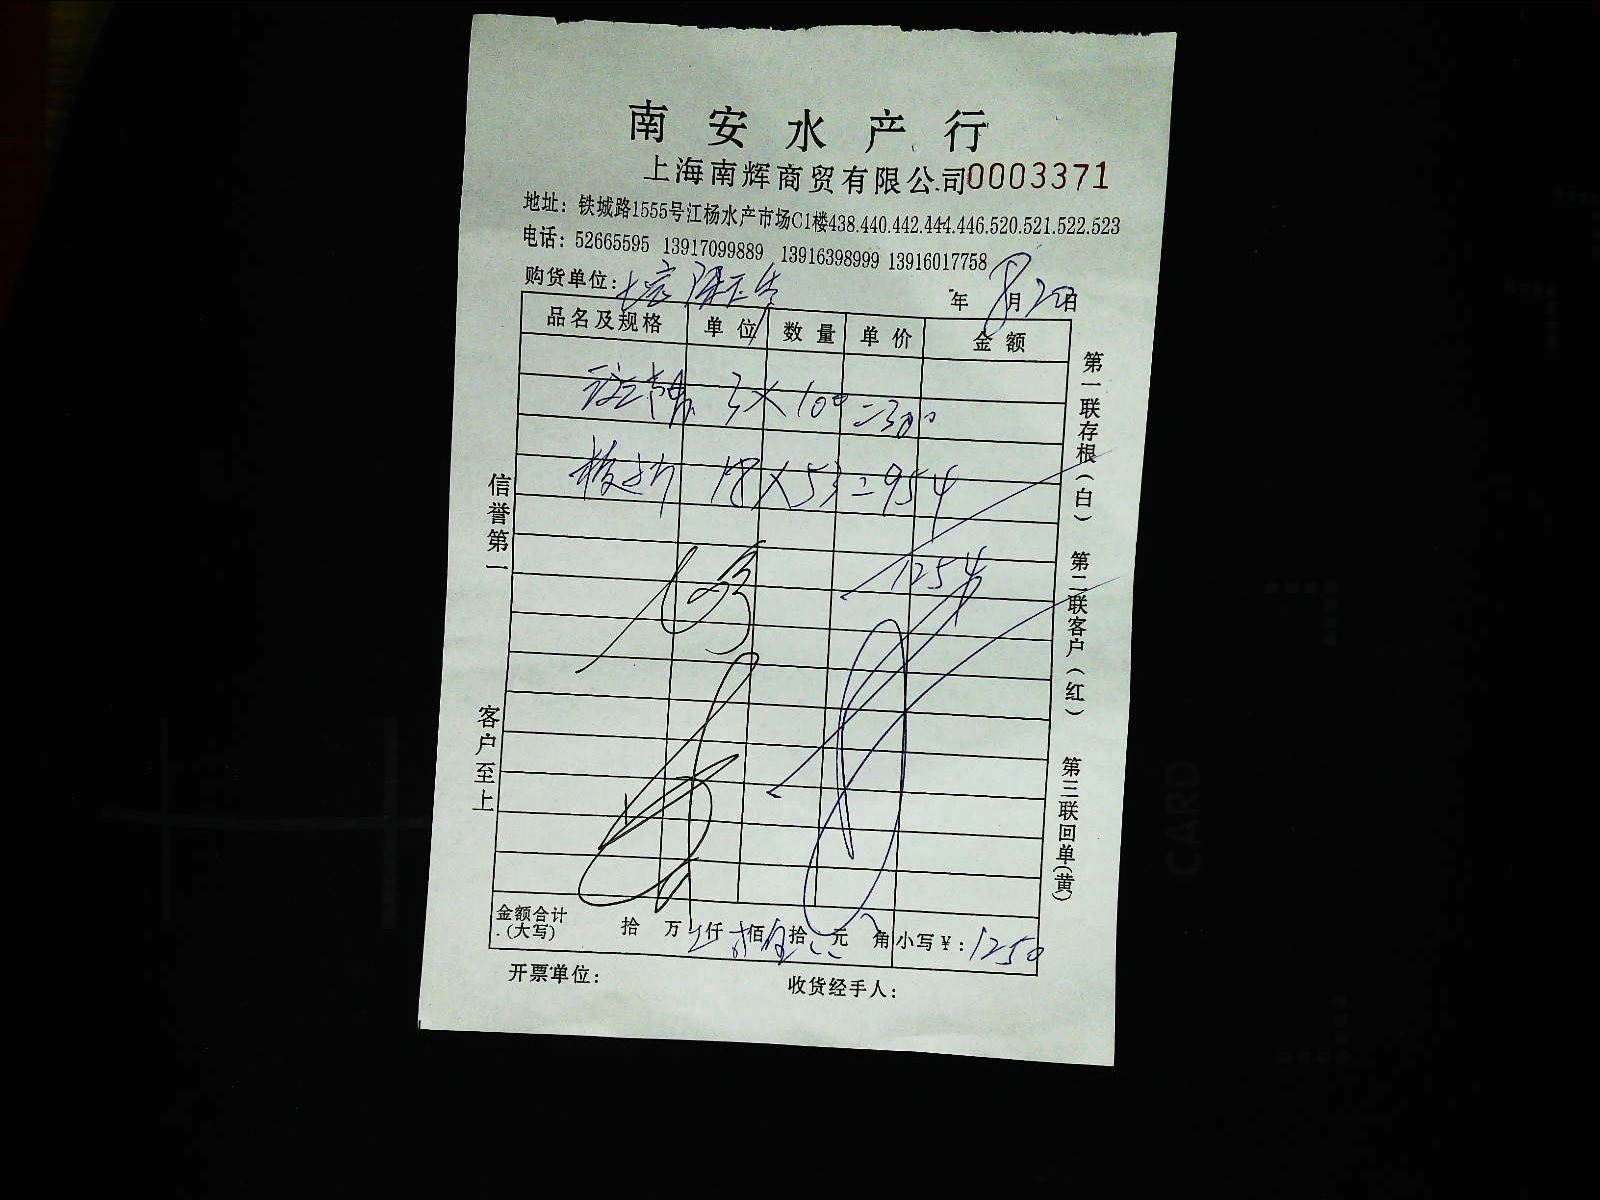 南安水产行
上海南辉商贸有限公司0003371
地址：铁城路1555号江杨水产市场C1楼438.440.442.444.446.520.521.522.523
电话：52665595 13917099889 13916398999 13916017758
购货单位：
年8月20日
品名及规格 单位 数量 单价 金额
3×100=300
18×53=954
1254
金额合计（大写） 拾 万 仟 佰 拾 元 角 小写¥：1250
开票单位： 收货经手人：
信誉第一
客户至上
第一联存根（白） 第二联客户（红） 第三联回单（黄）